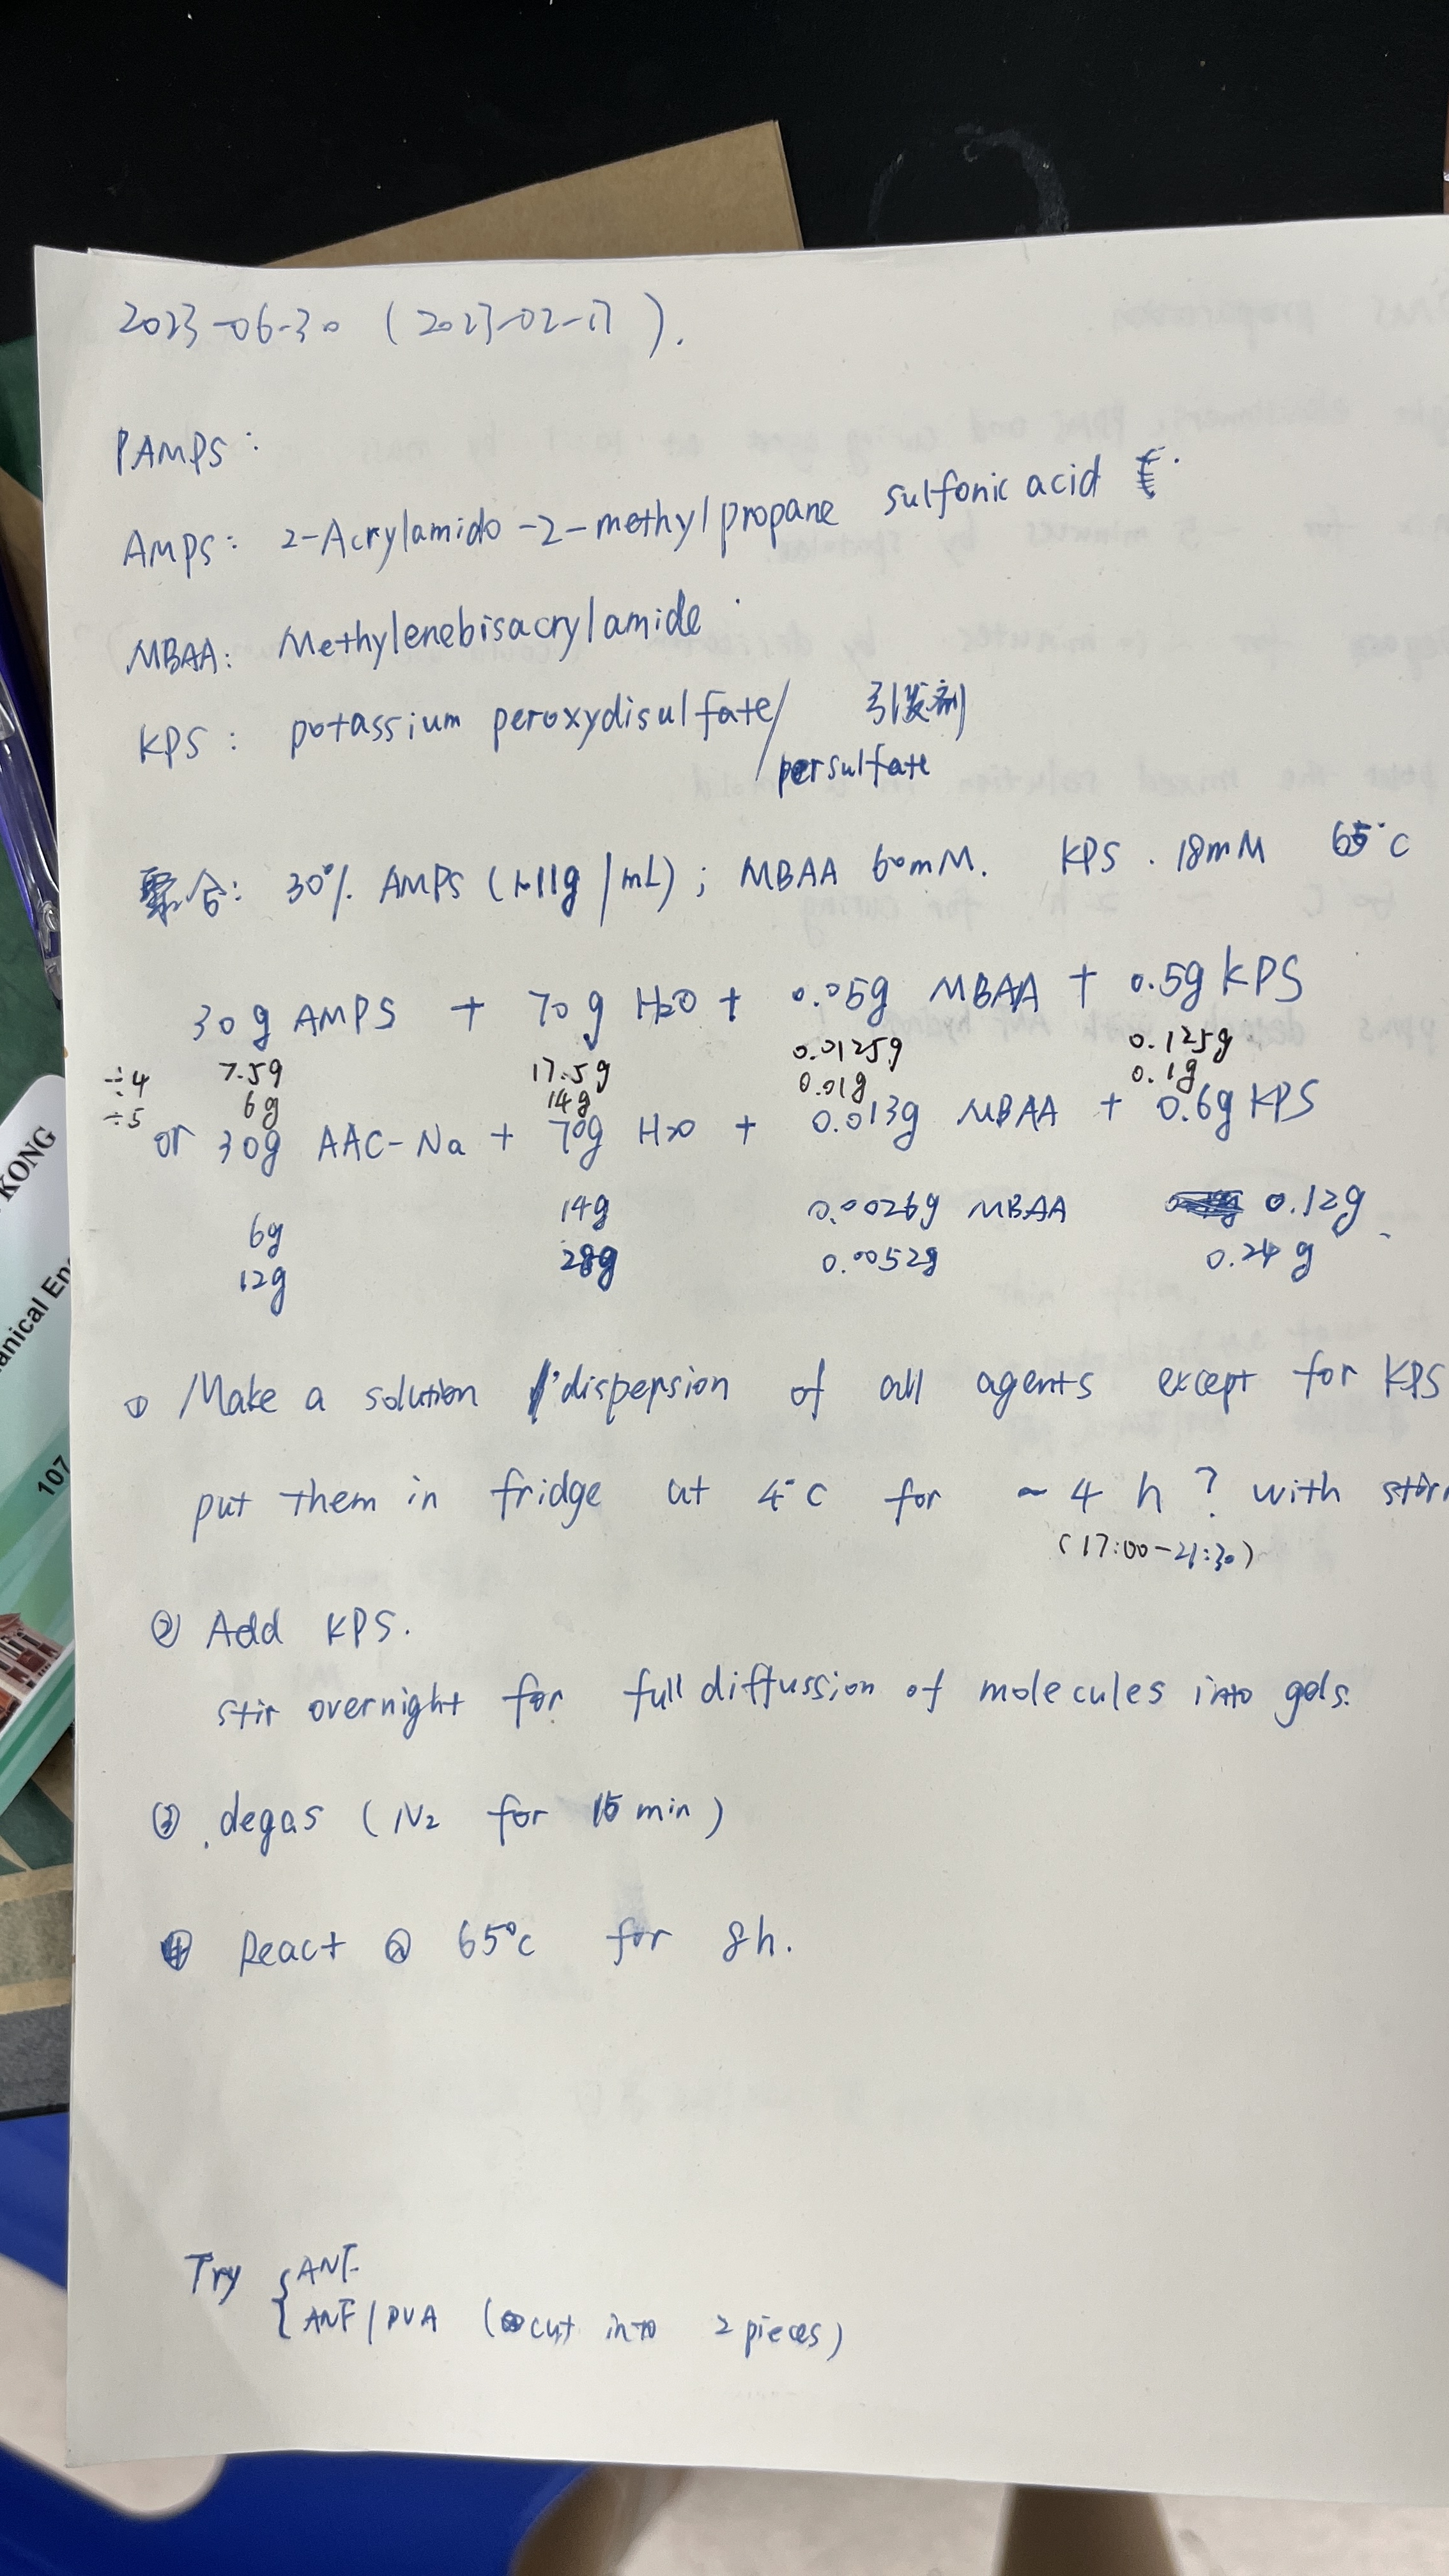 2023-06-30 (2023-02-17).
PAMPS:
AMPS: 2-Acrylamido-2-methylpropane sulfonic acid
MBAA: Methylenebisacrylamide
KPS: potassium peroxydisulfate/ 引发剂
persulfate
聚合: 30% AMPS (1.11g/mL); MBAA 60mM. KPS. 18mM 65°C
30g AMPS + 70g H2O + 0.05g MBAA + 0.5g KPS
÷4 7.5g 17.5g 0.0125g 0.125g
÷5 6g 14g 0.01g 0.1g
or 30g AAC-Na + 70g H2O + 0.013g MBAA + 0.6g KPS
6g 14g 0.0026g MBAA 0.12g
12g 28g 0.0052g 0.24g
① Make a solution/dispersion of all agents except for KPS
put them in fridge at 4°C for ~4 h? with
(17:00-21:30)
② Add KPS.
stir overnight for full diffussion of molecules into gels.
③ degas (N2 for 15 min)
④ React @ 65°C for 8h.
Try { ANF
ANF/PVA (cut into 2 pieces)
KONG
107